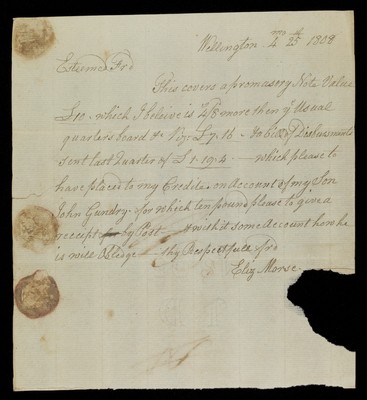 Wellington 4 mo 25th 1808
Esteemed Frd
This covers a promasary Note Value
£10 - which I believe is 4/8 more then ye Usual
quarters board &c Viz £7.16 - & bill of
sent last Quarter of £1.19.4 - which please to
have placed to my Credite on Account of my Son
John Gundry - for which ten pound please to give a
receipt by Post & with it some Account how he
is will Oblege thy Respectfull frd
Eliz Morse